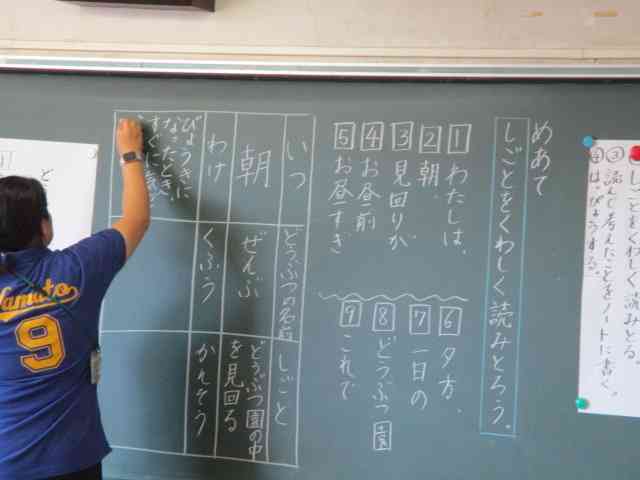 めあて
しごとをくわしく読みとろう。
1 わたしは、
2 朝
3 見回りが
4 お昼前
5 お昼すぎ
6 夕方、
7 一日の
8 どうぶつ園
9 これで
いつ
どうぶつの名前
しごと
朝
ぜんぶ
どうぶつ園の中
を見回る
わけ
くふう
かんそう
びょうきに
なったとき、
すぐに
しごとをくわしく読みとる。
③ 読んで考えたことをノートに書く。
④
Yamato
9